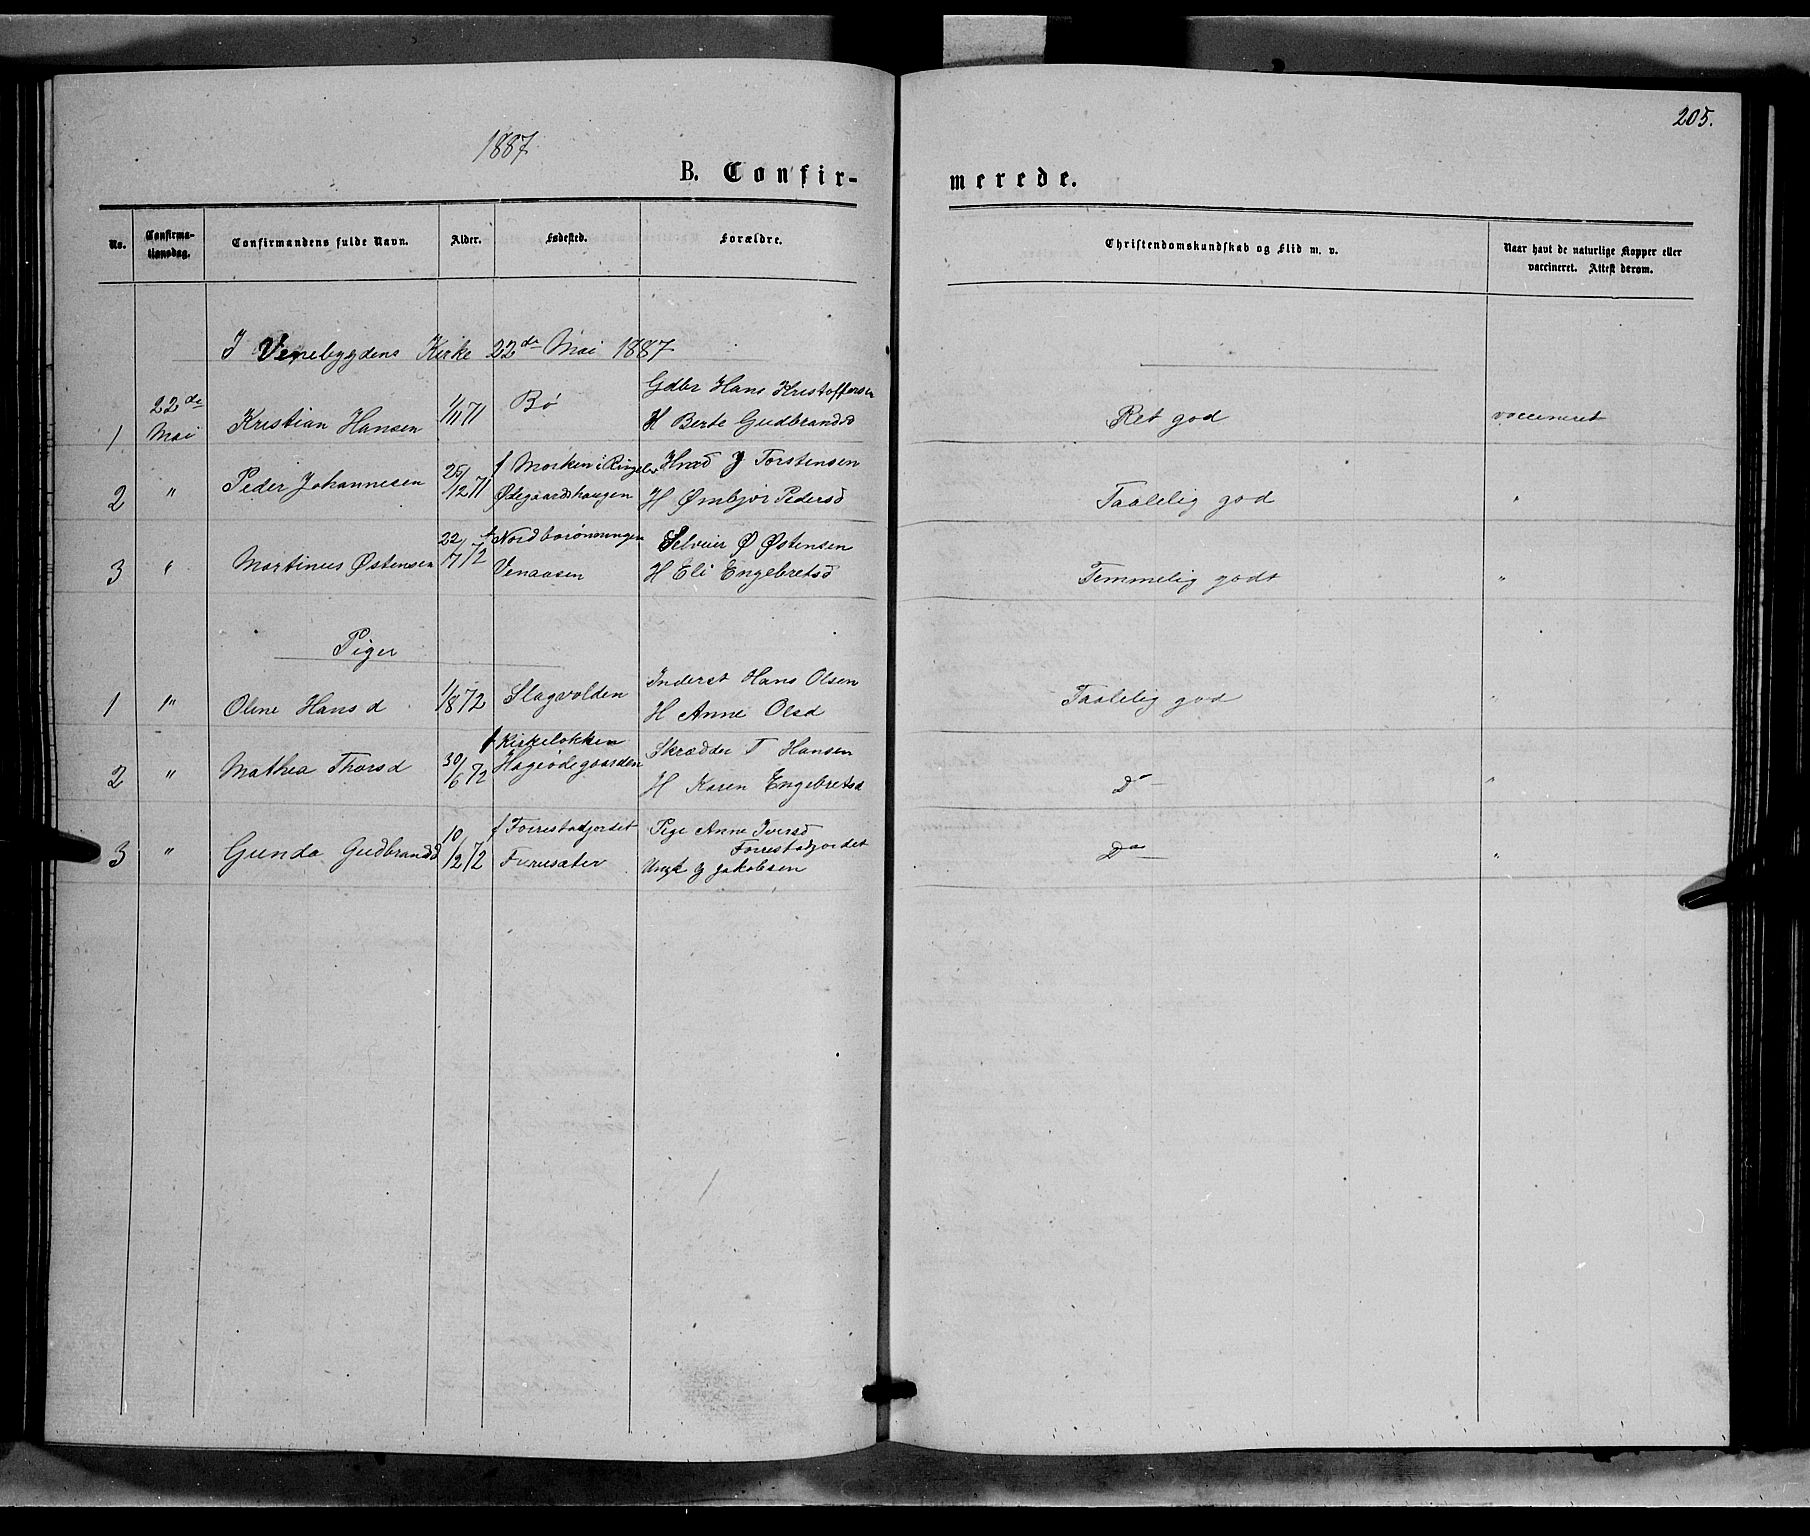 205.
1887
B. Confirmerede.
No. Confirmationsdag. Confirmandens fulde Navn. Alder. Fødested. Forældre. Christendomskundskab og Flid m. v. Naar havt de naturlige Kopper eller vaccineret. Attest derom.
I Venebygdens Kirke 22de Mai 1887
1 22de Mai Kristian Hansen 1/11 71 Bø Gdbr Hans Kristoffersen
H Berte Gudbrandsd Ret god vaccineret
2 " Peder Johannesen 25/12 71 f Morken i Ringebu Hmd J Torstensen
Ødegaardshaugen H Ømbjør Pedersd Taalelig god "
3 " Martinus Østensen 22/7 72 f Nordborønningen Selveier Ø Østensen
Venaasen H Eli Engebretsd Temmelig godt "
Piger
1 " Oline Hansd 1/8 72 Slagvolden Inderst Hans Olsen
H Anne Olsd Taalelig god "
2 " Mathea Thorsd 30/6 72 f Kirkeløkken Skrædder T Hansen
Hageødegaarden H Karen Engebretsd Do "
3 " Gunda Gudbrandsd 10/2 72 f Forrestadjordet Pige Anne Iversd
Forrestadjordet
Furusæter Ungk G Jakobsen Do "